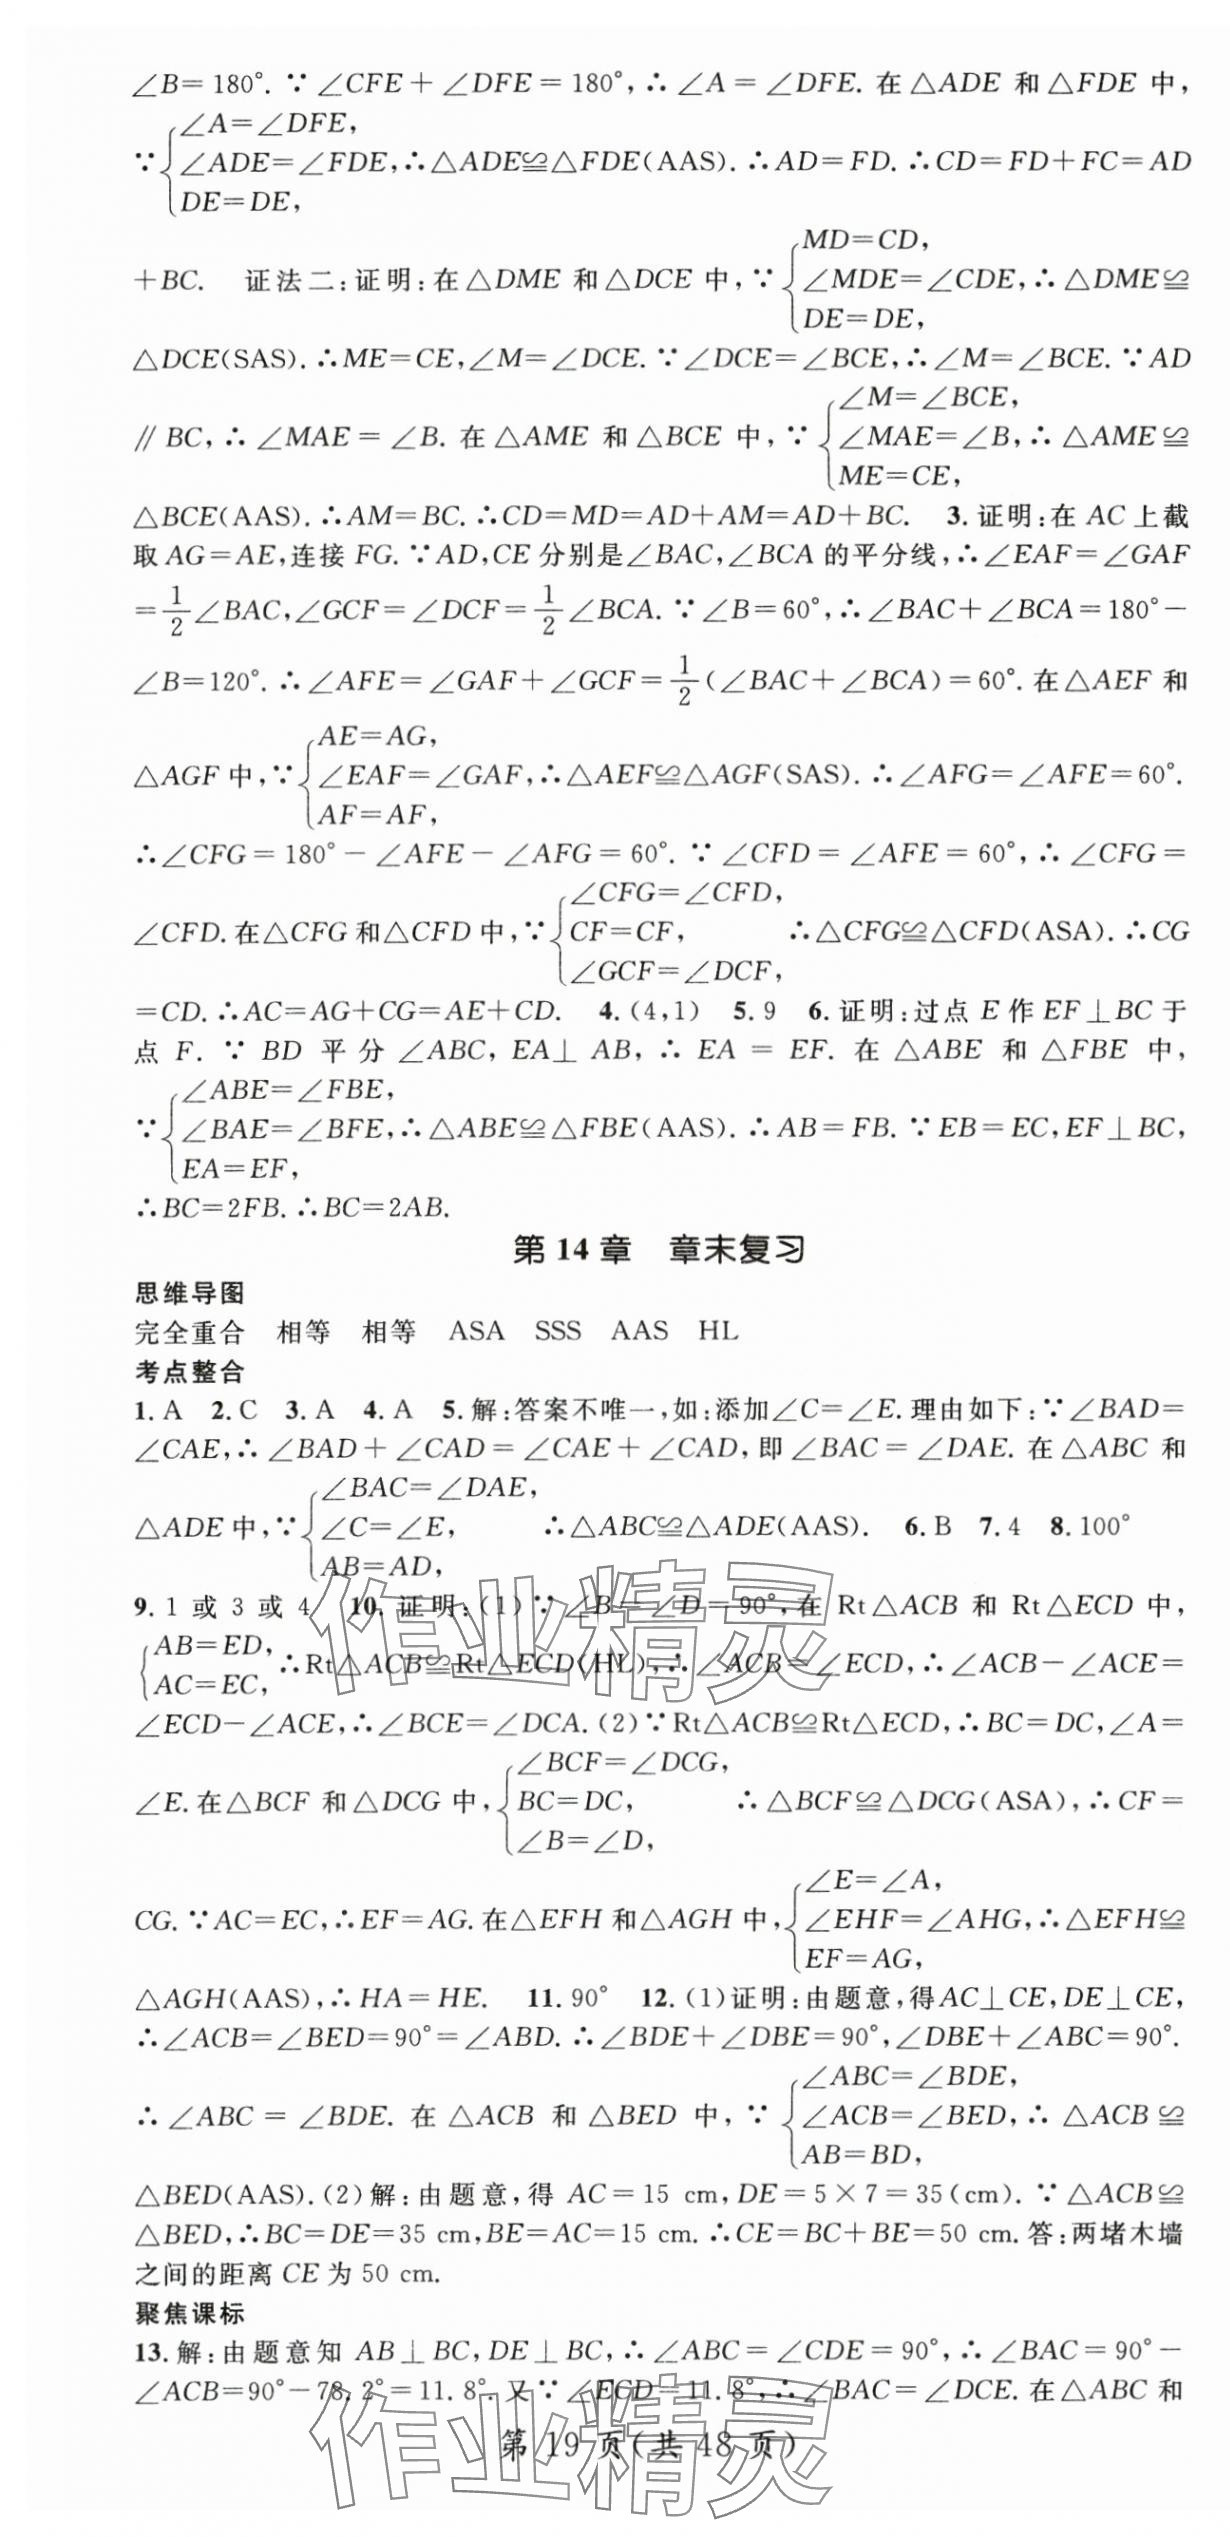 ∠B=180°. ∵ ∠CFE+∠DFE=180°,∴ ∠A=∠DFE. 在△ADE 和△FDE 中,
∠A=∠DFE,
∵{∠ADE=∠FDE,∴△ADE≌△FDE(AAS). ∴AD=FD. ∴CD=FD+FC=AD
DE=DE,
MD=CD,
+BC. 证法二:证明:在△DME 和△DCE 中,∵{∠MDE=∠CDE,∴△DME≌
DE=DE,
△DCE(SAS). ∴ME=CE,∠M=∠DCE. ∵∠DCE=∠BCE,∴∠M=∠BCE. ∵AD
∠M=∠BCE,
∥BC,∴∠MAE=∠B. 在△AME 和△BCE 中,∵{∠MAE=∠B,∴△AME≌
ME=CE,
△BCE(AAS). ∴AM=BC. ∴CD=MD=AD+AM=AD+BC. 3. 证明:在 AC 上截
取 AG=AE,连接 FG. ∵AD,CE 分别是∠BAC,∠BCA 的平分线,∴∠EAF=∠GAF
=1/2∠BAC,∠GCF=∠DCF=1/2∠BCA. ∵∠B=60°,∴∠BAC+∠BCA=180°-
∠B=120°. ∴∠AFE=∠GAF+∠GCF=1/2(∠BAC+∠BCA)=60°. 在△AEF 和
AE=AG,
△AGF 中,∵{∠EAF=∠GAF,∴△AEF≌△AGF(SAS). ∴∠AFG=∠AFE=60°.
AF=AF,
∴∠CFG=180°-∠AFE-∠AFG=60°. ∵∠CFD=∠AFE=60°,∴∠CFG=
∠CFG=∠CFD,
∠CFD. 在△CFG 和△CFD 中,∵{CF=CF, ∴△CFG≌△CFD(ASA). ∴CG
∠GCF=∠DCF,
=CD. ∴AC=AG+CG=AE+CD. 4. (4,1) 5. 9 6. 证明:过点 E 作 EF⊥BC 于
点 F. ∵ BD 平分∠ABC, EA⊥AB,∴ EA=EF. 在△ABE 和△FBE 中,
∠ABE=∠FBE,
∵{∠BAE=∠BFE,∴△ABE≌△FBE(AAS). ∴AB=FB. ∵EB=EC,EF⊥BC,
EA=EF,
∴BC=2FB. ∴BC=2AB.
第 14 章 章末复习
思维导图
完全重合 相等 相等 ASA SSS AAS HL
考点整合
1. A 2. C 3. A 4. A 5. 解:答案不唯一,如:添加∠C=∠E. 理由如下:∵∠BAD=
∠CAE,∴∠BAD+∠CAD=∠CAE+∠CAD,即∠BAC=∠DAE. 在△ABC 和
∠BAC=∠DAE,
△ADE 中,∵{∠C=∠E, ∴△ABC≌△ADE(AAS). 6. B 7. 4 8. 100°
AB=AD,
9. 1 或 3 或 4 10. 证明:(1)∵∠B=∠D=90°,在 Rt△ACB 和 Rt△ECD 中,
{AB=ED,
AC=EC, ∴Rt△ACB≌Rt△ECD(HL),∴∠ACB=∠ECD,∴∠ACB-∠ACE=
∠ECD-∠ACE,∴∠BCE=∠DCA. (2)∵Rt△ACB≌Rt△ECD,∴BC=DC,∠A=
∠BCF=∠DCG,
∠E. 在△BCF 和△DCG 中,{BC=DC, ∴△BCF≌△DCG(ASA),∴CF=
∠B=∠D,
∠E=∠A,
CG. ∵AC=EC,∴EF=AG. 在△EFH 和△AGH 中,{∠EHF=∠AHG,∴△EFH≌
EF=AG,
△AGH(AAS),∴HA=HE. 11. 90° 12. (1)证明:由题意,得AC⊥CE,DE⊥CE,
∴∠ACB=∠BED=90°=∠ABD. ∴∠BDE+∠DBE=90°,∠DBE+∠ABC=90°.
∠ABC=∠BDE,
∴∠ABC=∠BDE. 在△ACB 和△BED 中,∵{∠ACB=∠BED,∴△ACB≌
AB=BD,
△BED(AAS). (2)解:由题意,得 AC=15 cm,DE=5×7=35(cm). ∵△ACB≌
△BED,∴BC=DE=35 cm,BE=AC=15 cm. ∴CE=BC+BE=50 cm. 答:两堵木墙
之间的距离 CE 为 50 cm.
聚焦课标
13. 解:由题意知 AB⊥BC,DE⊥BC,∴∠ABC=∠CDE=90°,∴∠BAC=90°-
∠ACB=90°-78.2°=11.8°. 又∵∠ECD=11.8°,∴∠BAC=∠DCE. 在△ABC 和
第 19 页(共 48 页)
作业精灵
作业精灵